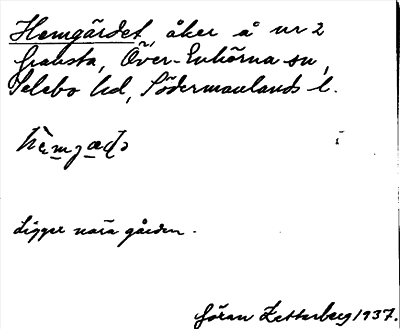 Hemgärdet, åker å nr 2
Över-Enhörna sn,
Selebo hd, Södermanlands l.
Ligger nära gården.
Göran Zetterberg 1937.